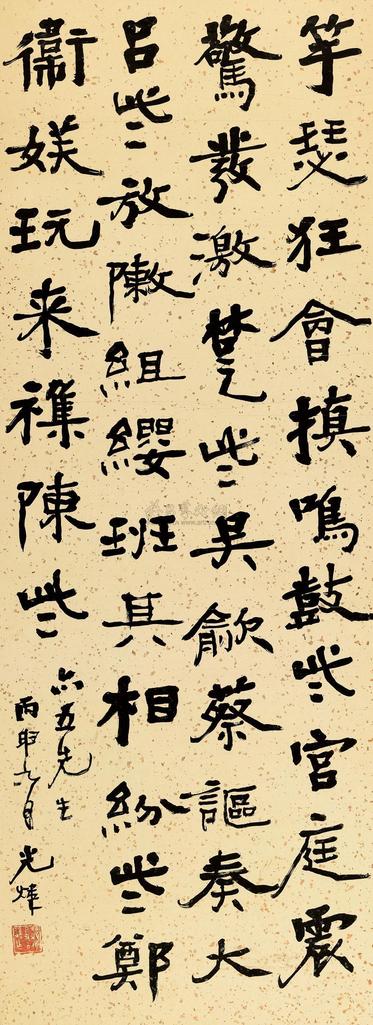 竽瑟狂會搷鳴鼓些宮庭震
驚發激楚些吳歈蔡謳奏大
呂些放敶組纓班其相紛些鄭
衛妖玩来襍陳些
六五先生
丙申九月 光煒